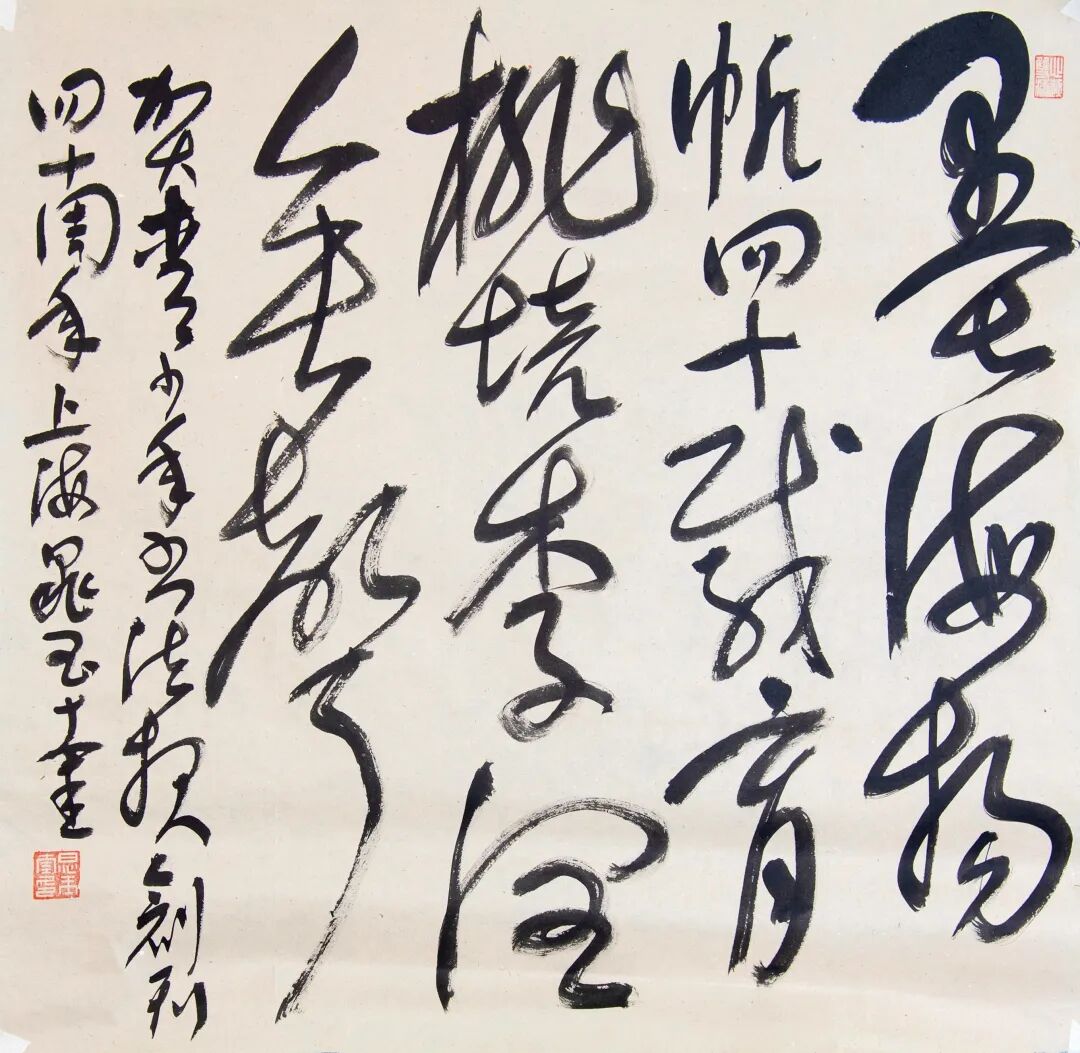 墨海扬
帆四十载育
桃培李润
無聲
贺青少年书法报创刊
四十周年上海晁玉奎